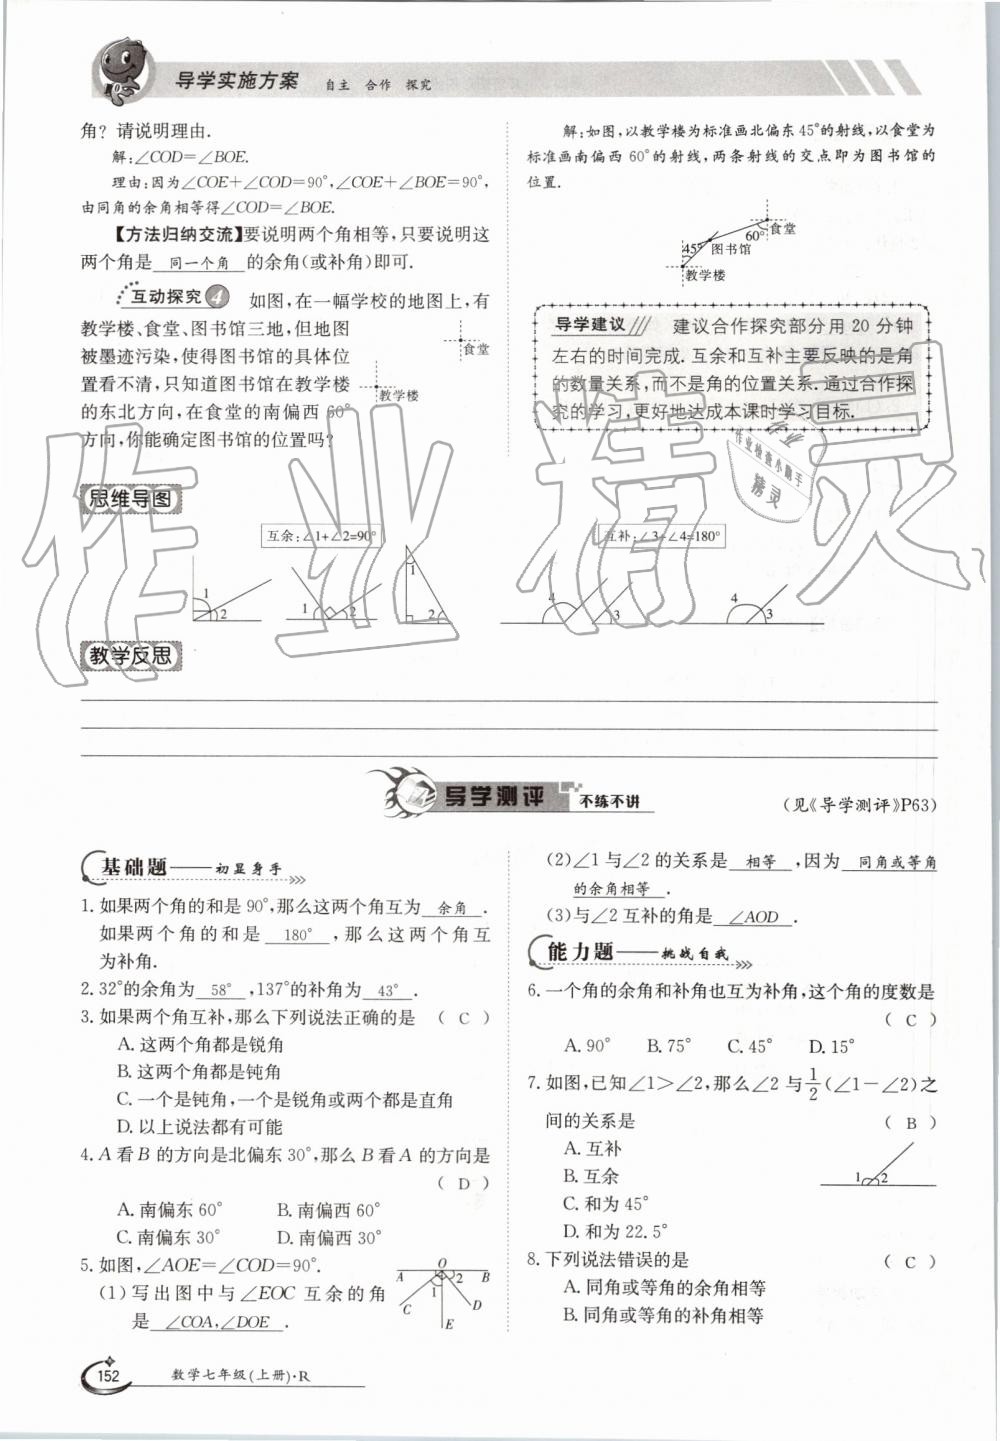 导学实施方案 自主 合作 探究
角?请说明理由.
解:∠COD=∠BOE.
理由:因为∠COE+∠COD=90°,∠COE+∠BOE=90°,
由同角的余角相等得∠COD=∠BOE.
【方法归纳交流】要说明两个角相等,只要说明这
两个角是 同一个角 的余角(或补角)即可.
互动探究4 如图,在一幅学校的地图上,有
教学楼、食堂、图书馆三地,但地图
被墨迹污染,使得图书馆的具体位
置看不清,只知道图书馆在教学楼
的东北方向,在食堂的南偏西 60°
方向,你能确定图书馆的位置吗?
食堂
教学楼
解:如图,以教学楼为标准画北偏东 45°的射线,以食堂为
标准画南偏西 60°的射线,两条射线的交点即为图书馆的
位置.
食堂
60°
45° 图书馆
教学楼
导学建议 建议合作探究部分用 20 分钟
左右的时间完成. 互余和互补主要反映的是角
的数量关系,而不是角的位置关系. 通过合作探
究的学习,更好地达成本课时学习目标.
思维导图
互余:∠1+∠2=90°
互补:∠3+∠4=180°
1 2
1 2
1 2
4 3
4 3
教学反思
作业精灵
作业
作业检查小助手
精灵
导学测评 不练不讲
(见《导学测评》P63)
基础题——初显身手
1. 如果两个角的和是 90°,那么这两个角互为 余角 .
如果两个角的和是 180° ,那么这两个角互
为补角.
2. 32°的余角为 58° ,137°的补角为 43° .
3. 如果两个角互补,那么下列说法正确的是 ( C )
A. 这两个角都是锐角
B. 这两个角都是钝角
C. 一个是钝角,一个是锐角或两个都是直角
D. 以上说法都有可能
4. A 看 B 的方向是北偏东 30°,那么 B 看 A 的方向是
( D )
A. 南偏东 60° B. 南偏西 60°
C. 南偏东 30° D. 南偏西 30°
5. 如图,∠AOE=∠COD=90°.
(1)写出图中与∠EOC 互余的角
是 ∠COA,∠DOE .
O
A 2 B
1
C D
E
(2)∠1 与∠2 的关系是 相等 ,因为 同角或等角
的余角相等 .
(3)与∠2 互补的角是 ∠AOD .
能力题——挑战自我
6. 一个角的余角和补角也互为补角,这个角的度数是
( C )
A. 90° B. 75° C. 45° D. 15°
7. 如图,已知∠1>∠2,那么∠2 与1/2(∠1-∠2)之
间的关系是 ( B )
A. 互补
B. 互余
C. 和为 45°
D. 和为 22.5°
1 2
8. 下列说法错误的是 ( C )
A. 同角或等角的余角相等
B. 同角或等角的补角相等
152 数学七年级(上册)·R